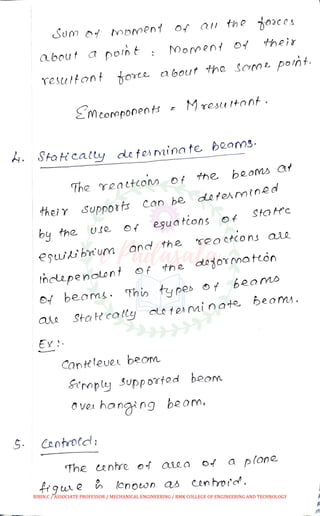 Sum of moment of all the forces
about a point : Moment of their
resultant force about the same point.
ΣMcomponents = M resultant.
4. Statically determinate beams.
The reactions of the beams at
their supports can be determined
by the use of equations of static
equilibrium and the reactions are
independent of the deformation
of beams. This types of beams
are statically determinate beams.
Ex :.
Cantilever beam
Simply supported beam
Over hanging beam.
5. Centroid:
The centre of area of a plane
figure is known as centroid.
Padasala
BIBIN.C / ASSOCIATE PROFESSOR / MECHANICAL ENGINEERING / RMK COLLEGE OF ENGINEERING AND TECHNOLOGY